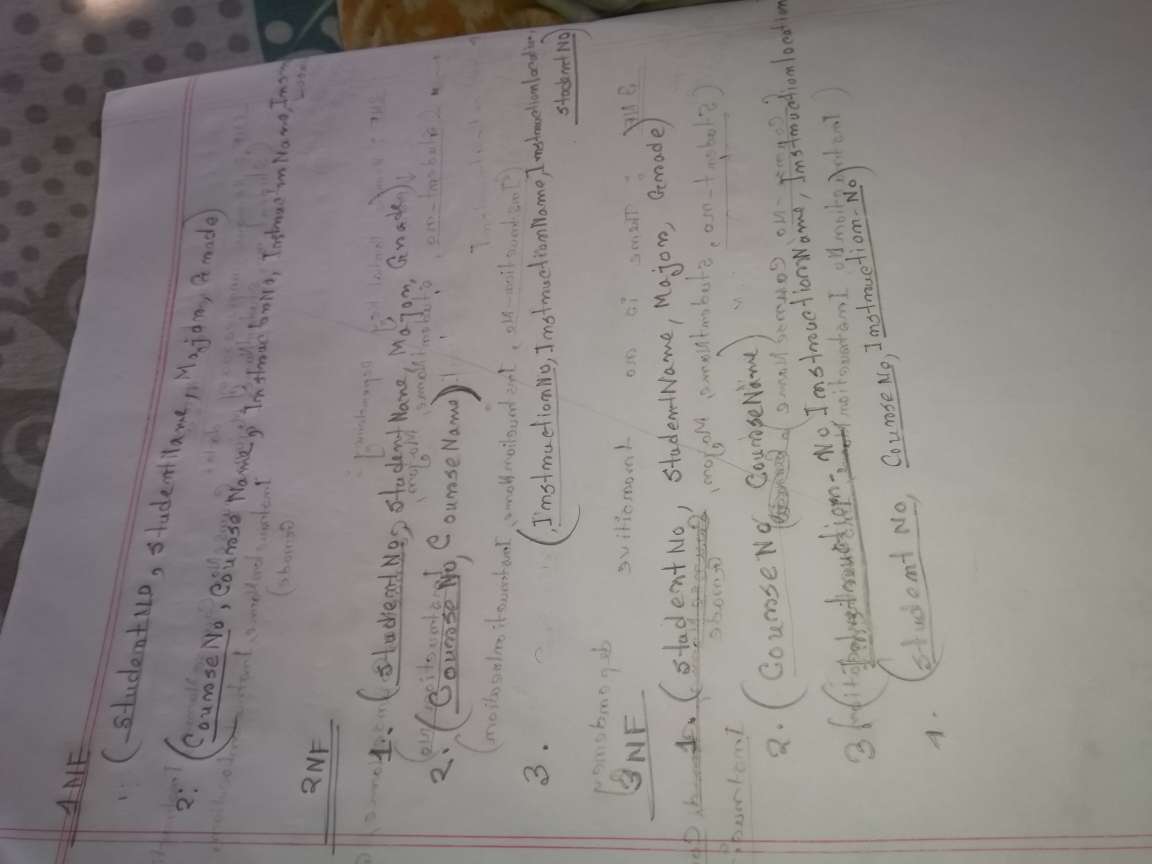 1NF
1: (StudentNo, StudentName, Major, Grade)
2: (CourseNo, Course Name, InstructorNo, InstructorName,
2NF
1. (StudentNo, StudentName, Major, Grade)
2. (CourseNo, CourseName)
3. (InstructionNo, InstructionName, Instructionlocation,
StudentNo)
3NF
1. (StudentNo, StudentName, Major, Grade)
2. (CourseNo, CourseName)
3. (Instruction-No, InstructionName, Instructionlocation
4. (Student No, CourseNo, Instruction-No)